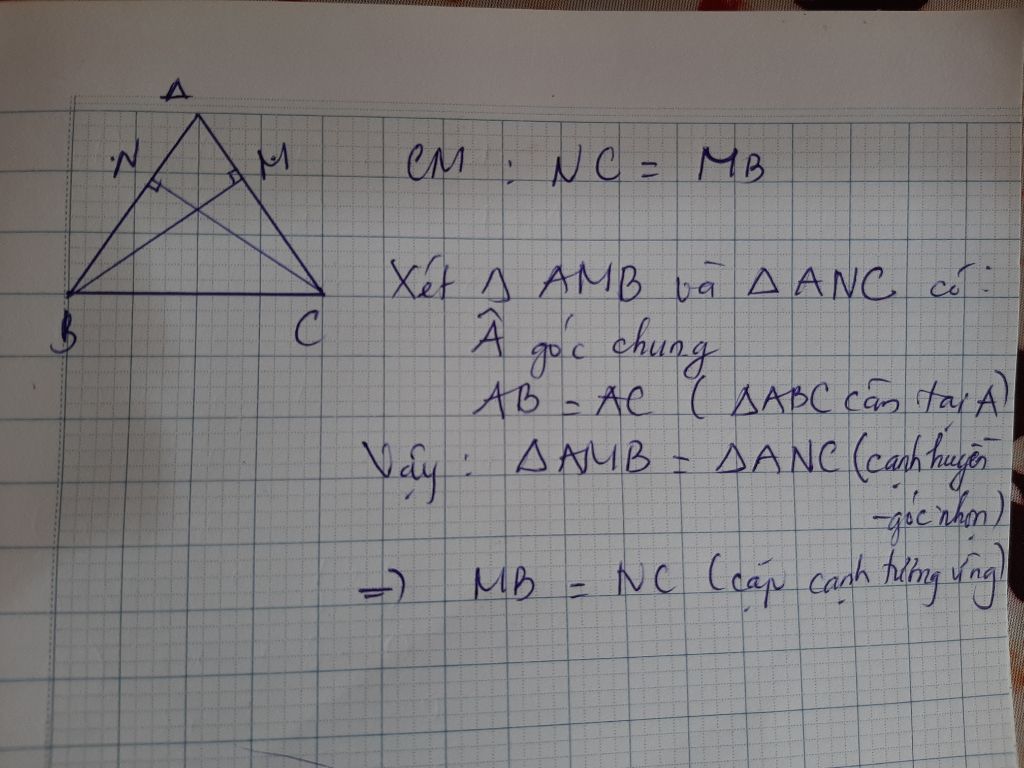 A
N
M
B
C
CM : NC = MB
Xét Δ AMB và Δ ANC có:
Â góc chung
AB = AC ( ΔABC cân tại A)
Vậy : ΔAMB = ΔANC (cạnh huyền
-góc nhọn)
=> MB = NC (cặp cạnh tương ứng)